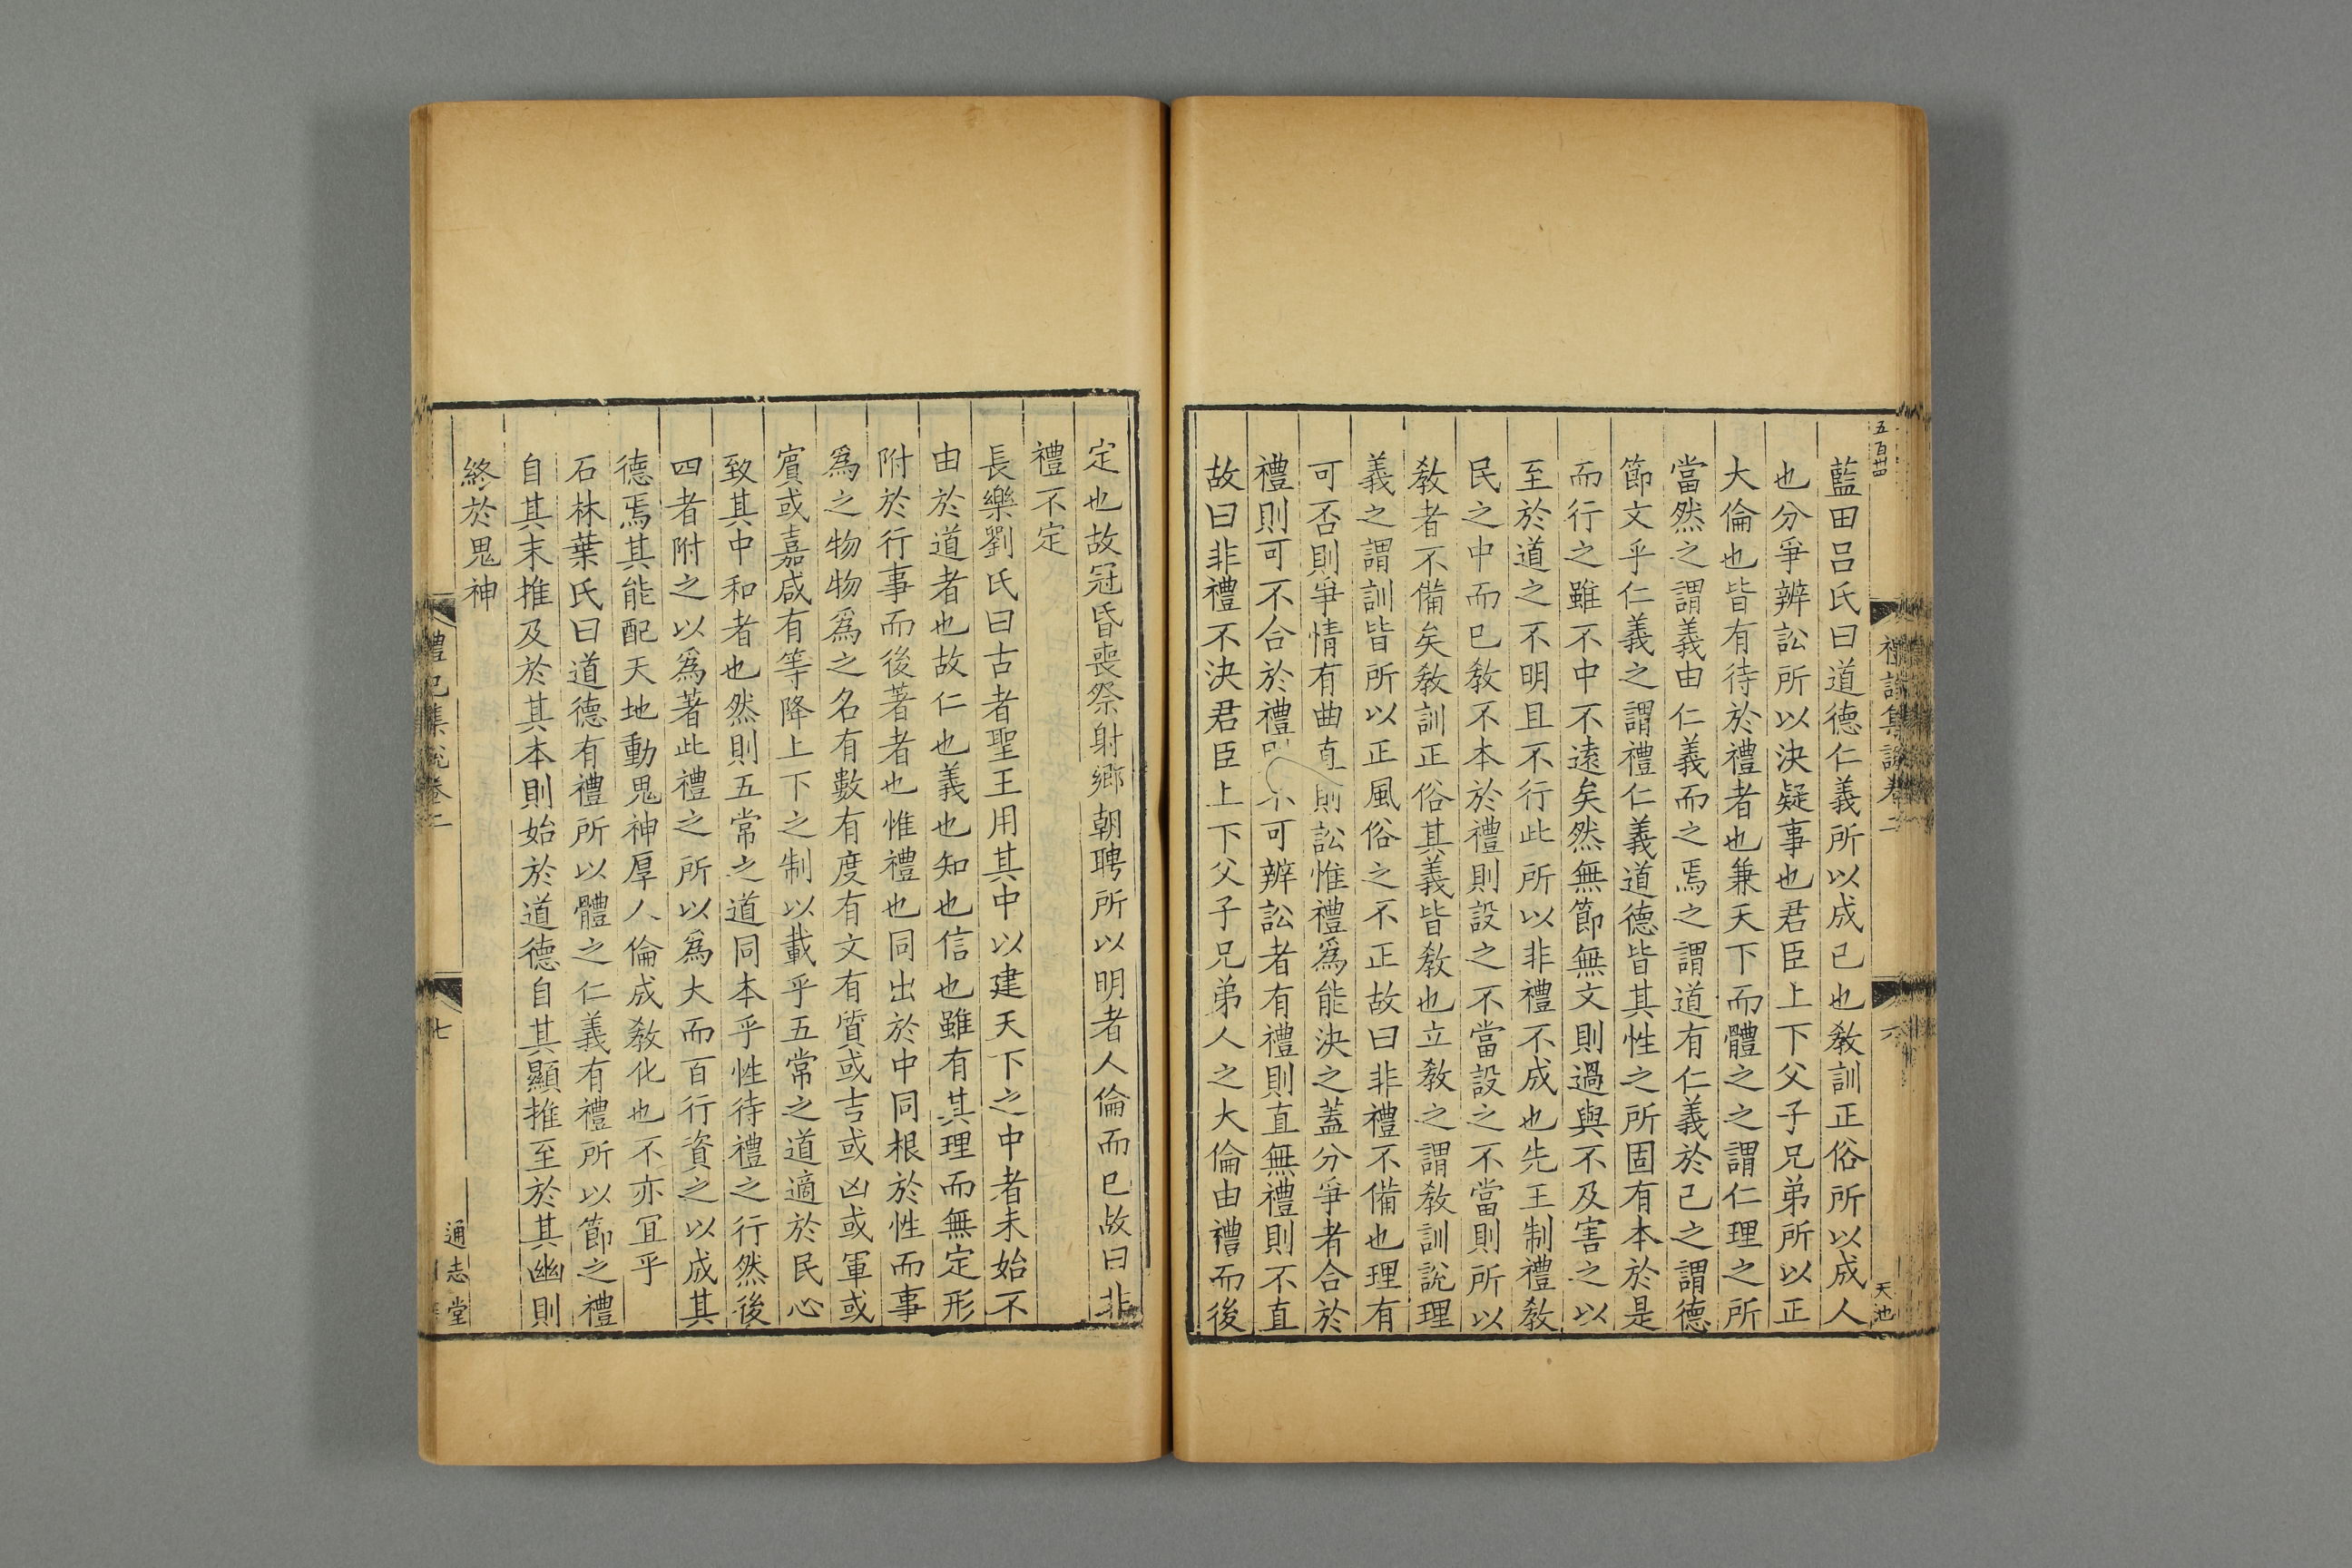 五百卅四
藍田呂氏曰道德仁義所以成己也敎訓正俗所以成人
也分爭辨訟所以決疑事也君臣上下父子兄弟所以正
大倫也皆有待於禮者也兼天下而體之之謂仁理之所
當然之謂義由仁義而之焉之謂道有仁義於己之謂德
節文乎仁義之謂禮仁義道德皆其性之所固有本於是
而行之雖不中不遠矣然無節無文則過與不及害之以
至於道之不明且不行此所以非禮不成也先王制禮敎
民之中而已敎不本於禮則設之不當設之不當則所以
敎者不備矣敎訓正俗其義皆敎也立敎之謂敎訓說理
義之謂訓皆所以正風俗之不正故曰非禮不備也理有
可否則爭情有曲直則訟惟禮爲能決之蓋分爭者合於
禮則可不合於禮則不可辨訟者有禮則直無禮則不直
故曰非禮不決君臣上下父子兄弟人之大倫由禮而後
禮記集說卷二
六
天池
定也故冠昏喪祭射鄉朝聘所以明者人倫而已故曰非
禮不定
長樂劉氏曰古者聖王用其中以建天下之中者未始不
由於道者也故仁也義也知也信也雖有其理而無定形
附於行事而後著者也惟禮也同出於中同根於性而事
爲之物物爲之名有數有度有文有質或吉或凶或軍或
賓或嘉咸有等降上下之制以載乎五常之道適於民心
致其中和者也然則五常之道同本乎性待禮之行然後
四者附之以爲著此禮之所以爲大而百行資之以成其
德焉其能配天地動鬼神厚人倫成敎化也不亦宜乎
石林葉氏曰道德有禮所以體之仁義有禮所以節之禮
自其末推及於其本則始於道德自其顯推至於其幽則
終於鬼神
禮記集說卷二
七
通志堂